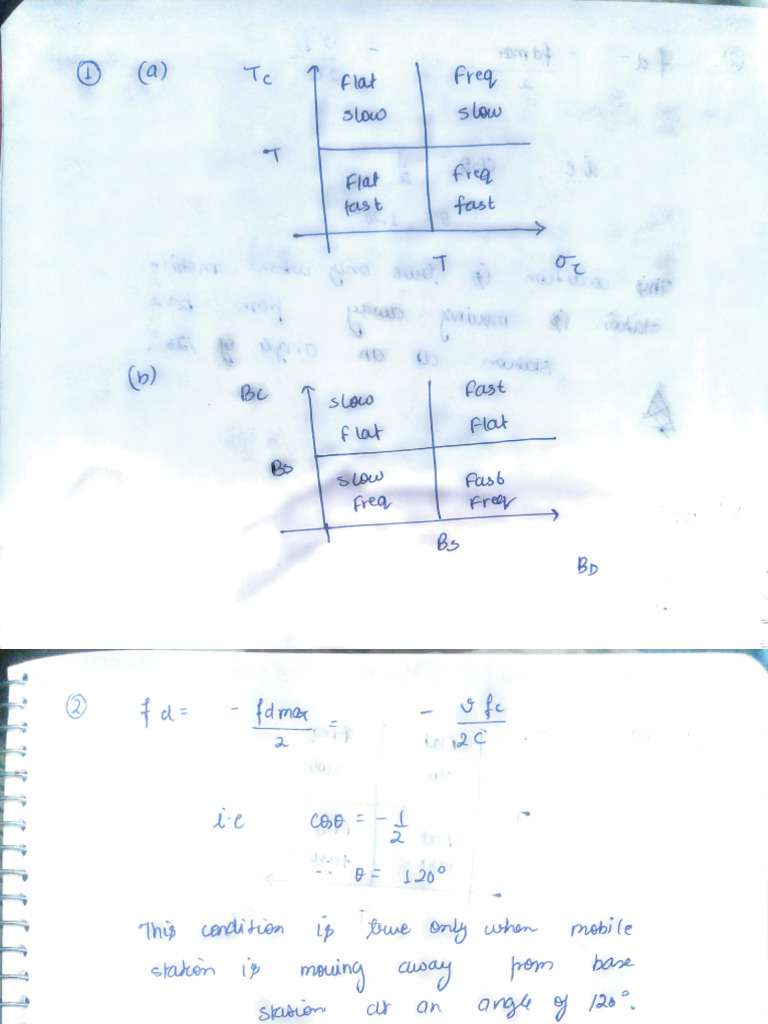 ① (a) Tc Flat Freq
slow slow
T
Flat Freq
fast fast
T στ
(b) Bc slow Fast
flat Flat
Bs slow Fast
Freq Freq
Bs
BD
② fd = - fdmax/2 = - v fc/2C
i.e cosθ = - 1/2
θ = 120°
This condition is true only when mobile
station is moving away from base
station at an angle of 120°.